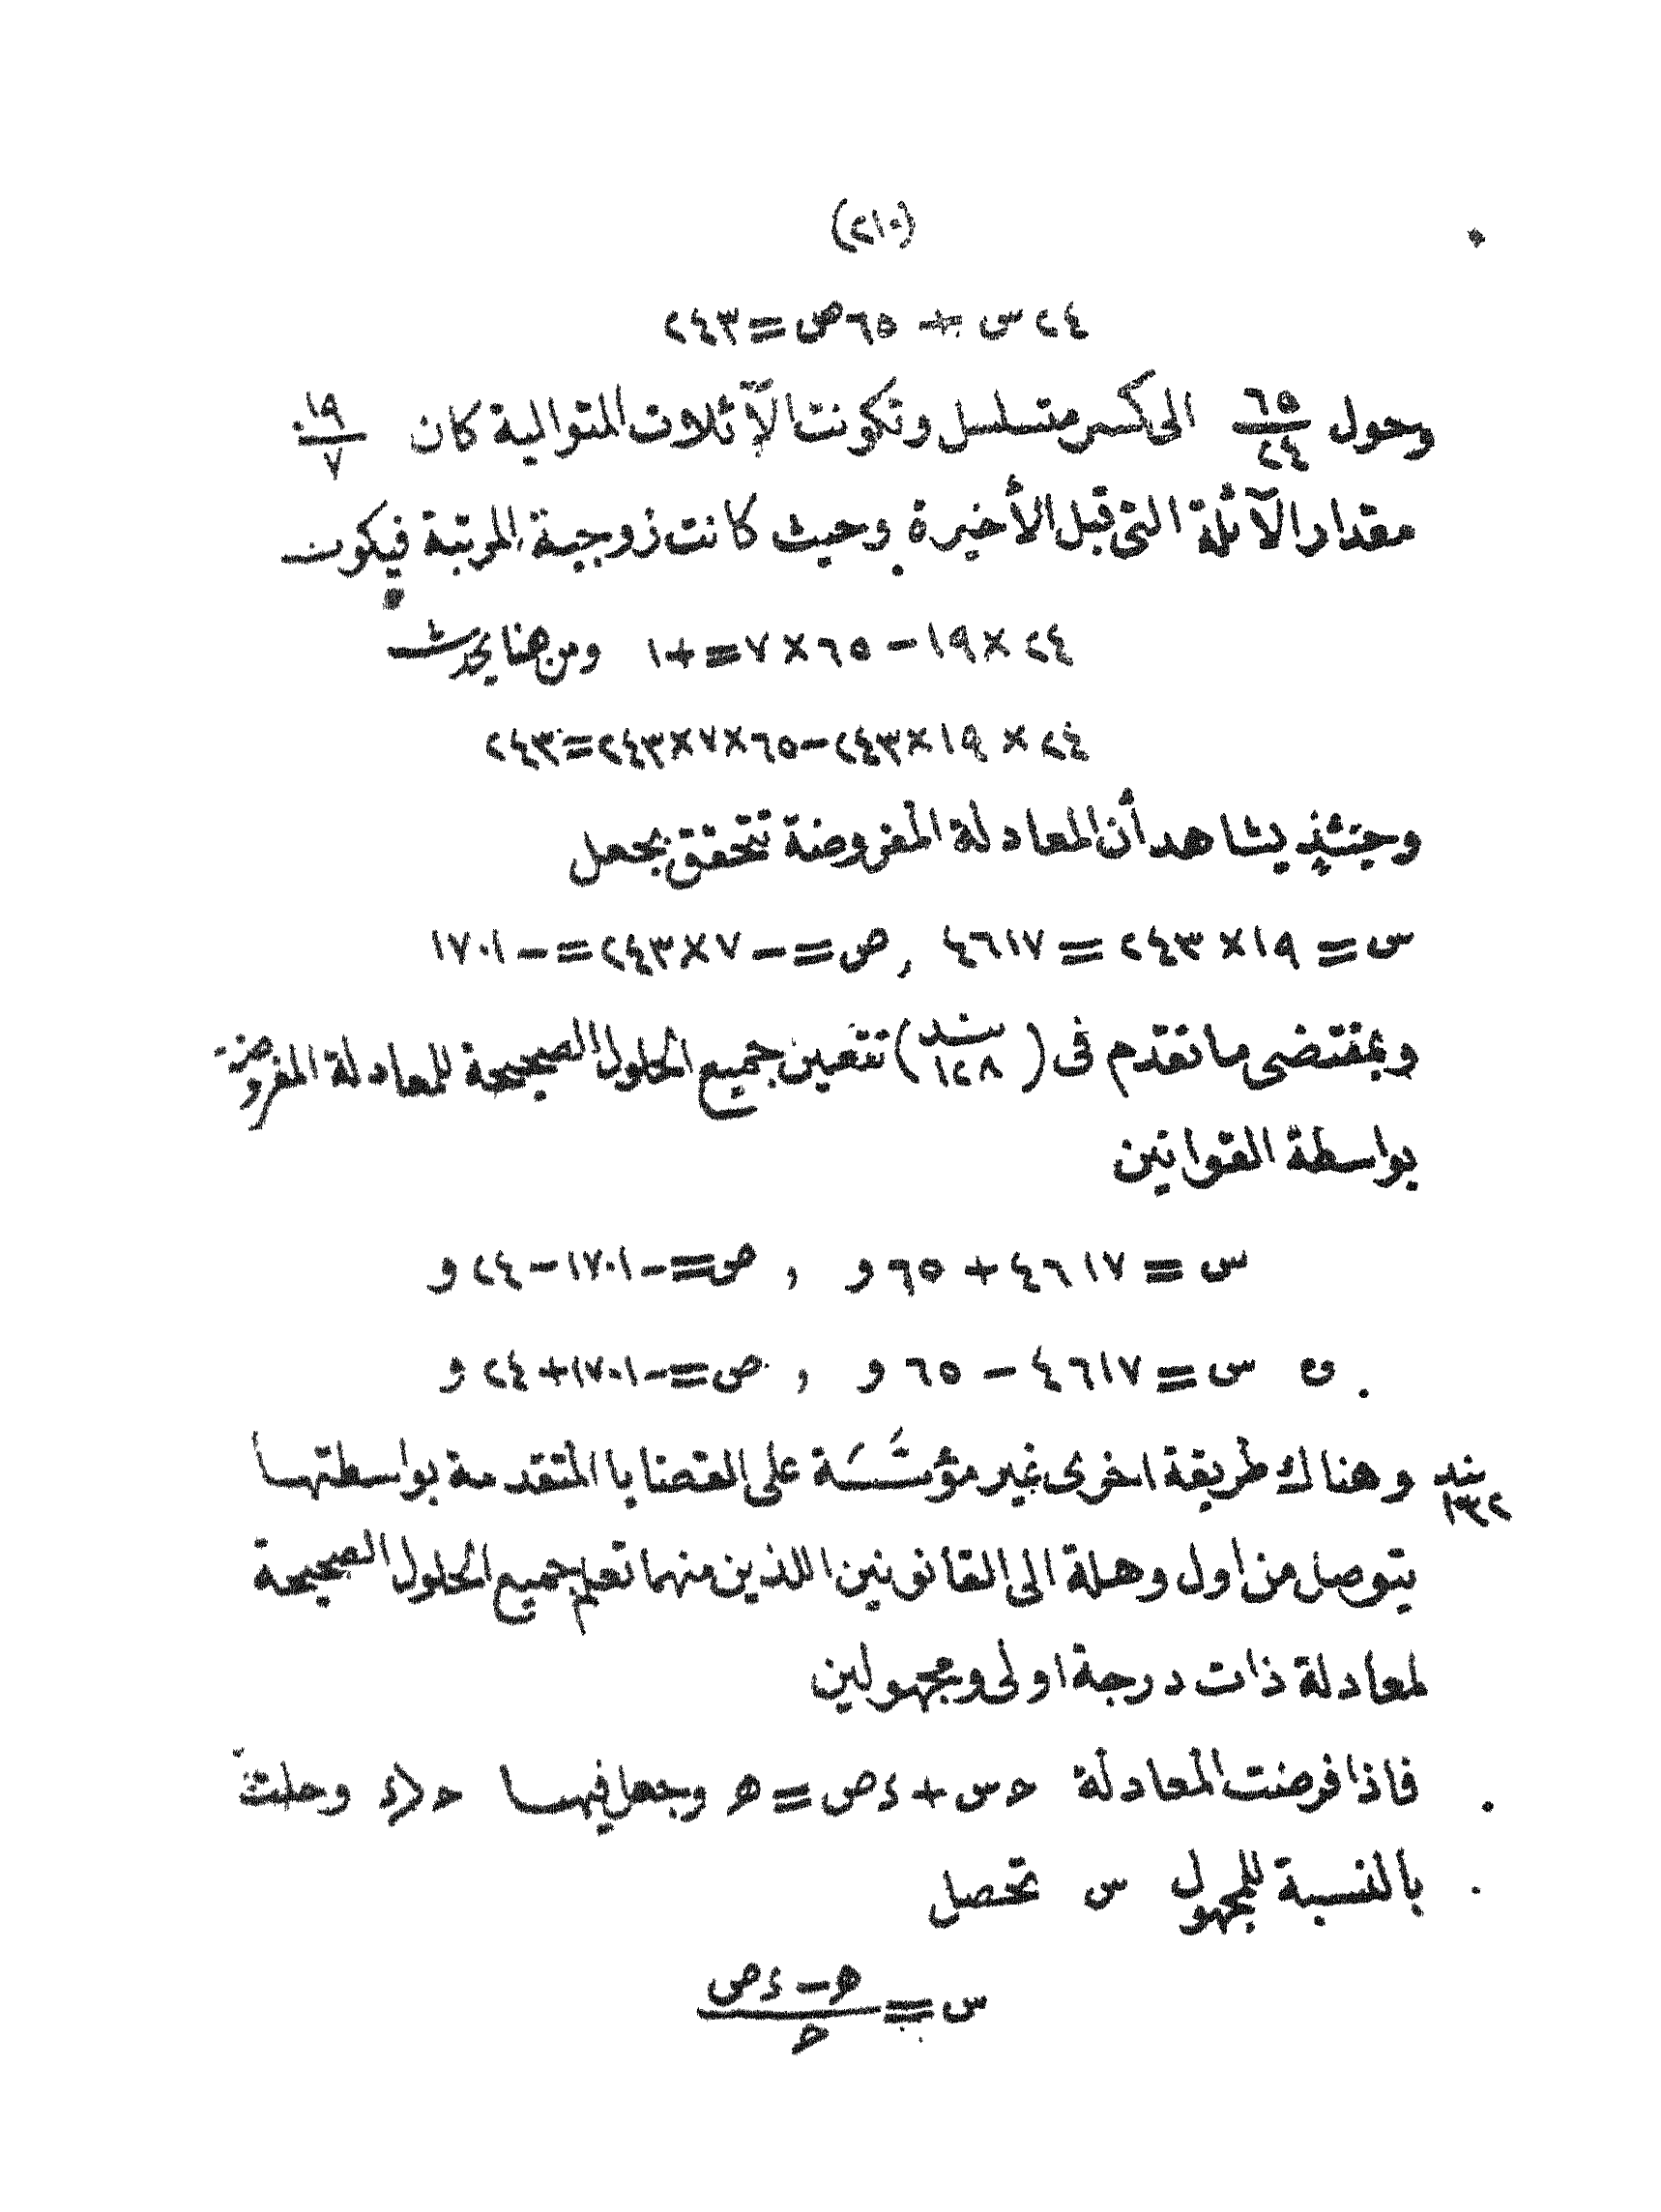 (٢١٠)
٢٤س + ٦٥ص = ٢٤٣
وحول ٦٥/٢٤ الى كسر متسلسل وتكونت الآئلات المتوالية كان ١٩/٧
مقدار الآئلة التى قبل الأخيرة وحيث كانت زوجية المرتبة فيكون
٢٤ × ١٩ − ٦٥ × ٧ = +١ ومن هنا يحدث
٢٤ × ١٩ × ٢٤٣ − ٦٥ × ٧ × ٢٤٣ = ٢٤٣
وحينئذٍ يشاهد أن المعادلة المفروضة تتحقق بجعل
س = ١٩ × ٢٤٣ = ٤٦١٧ , ص = − ٧ × ٢٤٣ = − ١٧٠١
وبمقتضى ما تقدم فى (بند ١٢٨) تتعين جميع الحلول الصحيحة للمعادلة المفروضة
بواسطة القوانين
س = ٤٦١٧ + ٦٥ و , ص = − ١٧٠١ − ٢٤ و
ں س = ٤٦١٧ − ٦٥ و , ص = − ١٧٠١ + ٢٤ و
بند ١٣٢ وهناك طريقة اخرى غير مؤسَّسَة على القضايا المتقدمة بواسطتها
يتوصل من اول وهلة الى القانونين اللذين منهما تعلم جميع الحلول الصحيحة
لمعادلة ذات درجة اولى ومجهولين
فاذا فرضت المعادلة حس + ءص = ھ وجعل فيها ح < ء وحلت
بالنسبة للمجهول س تحصل
س = (ھ − ءص)/ح